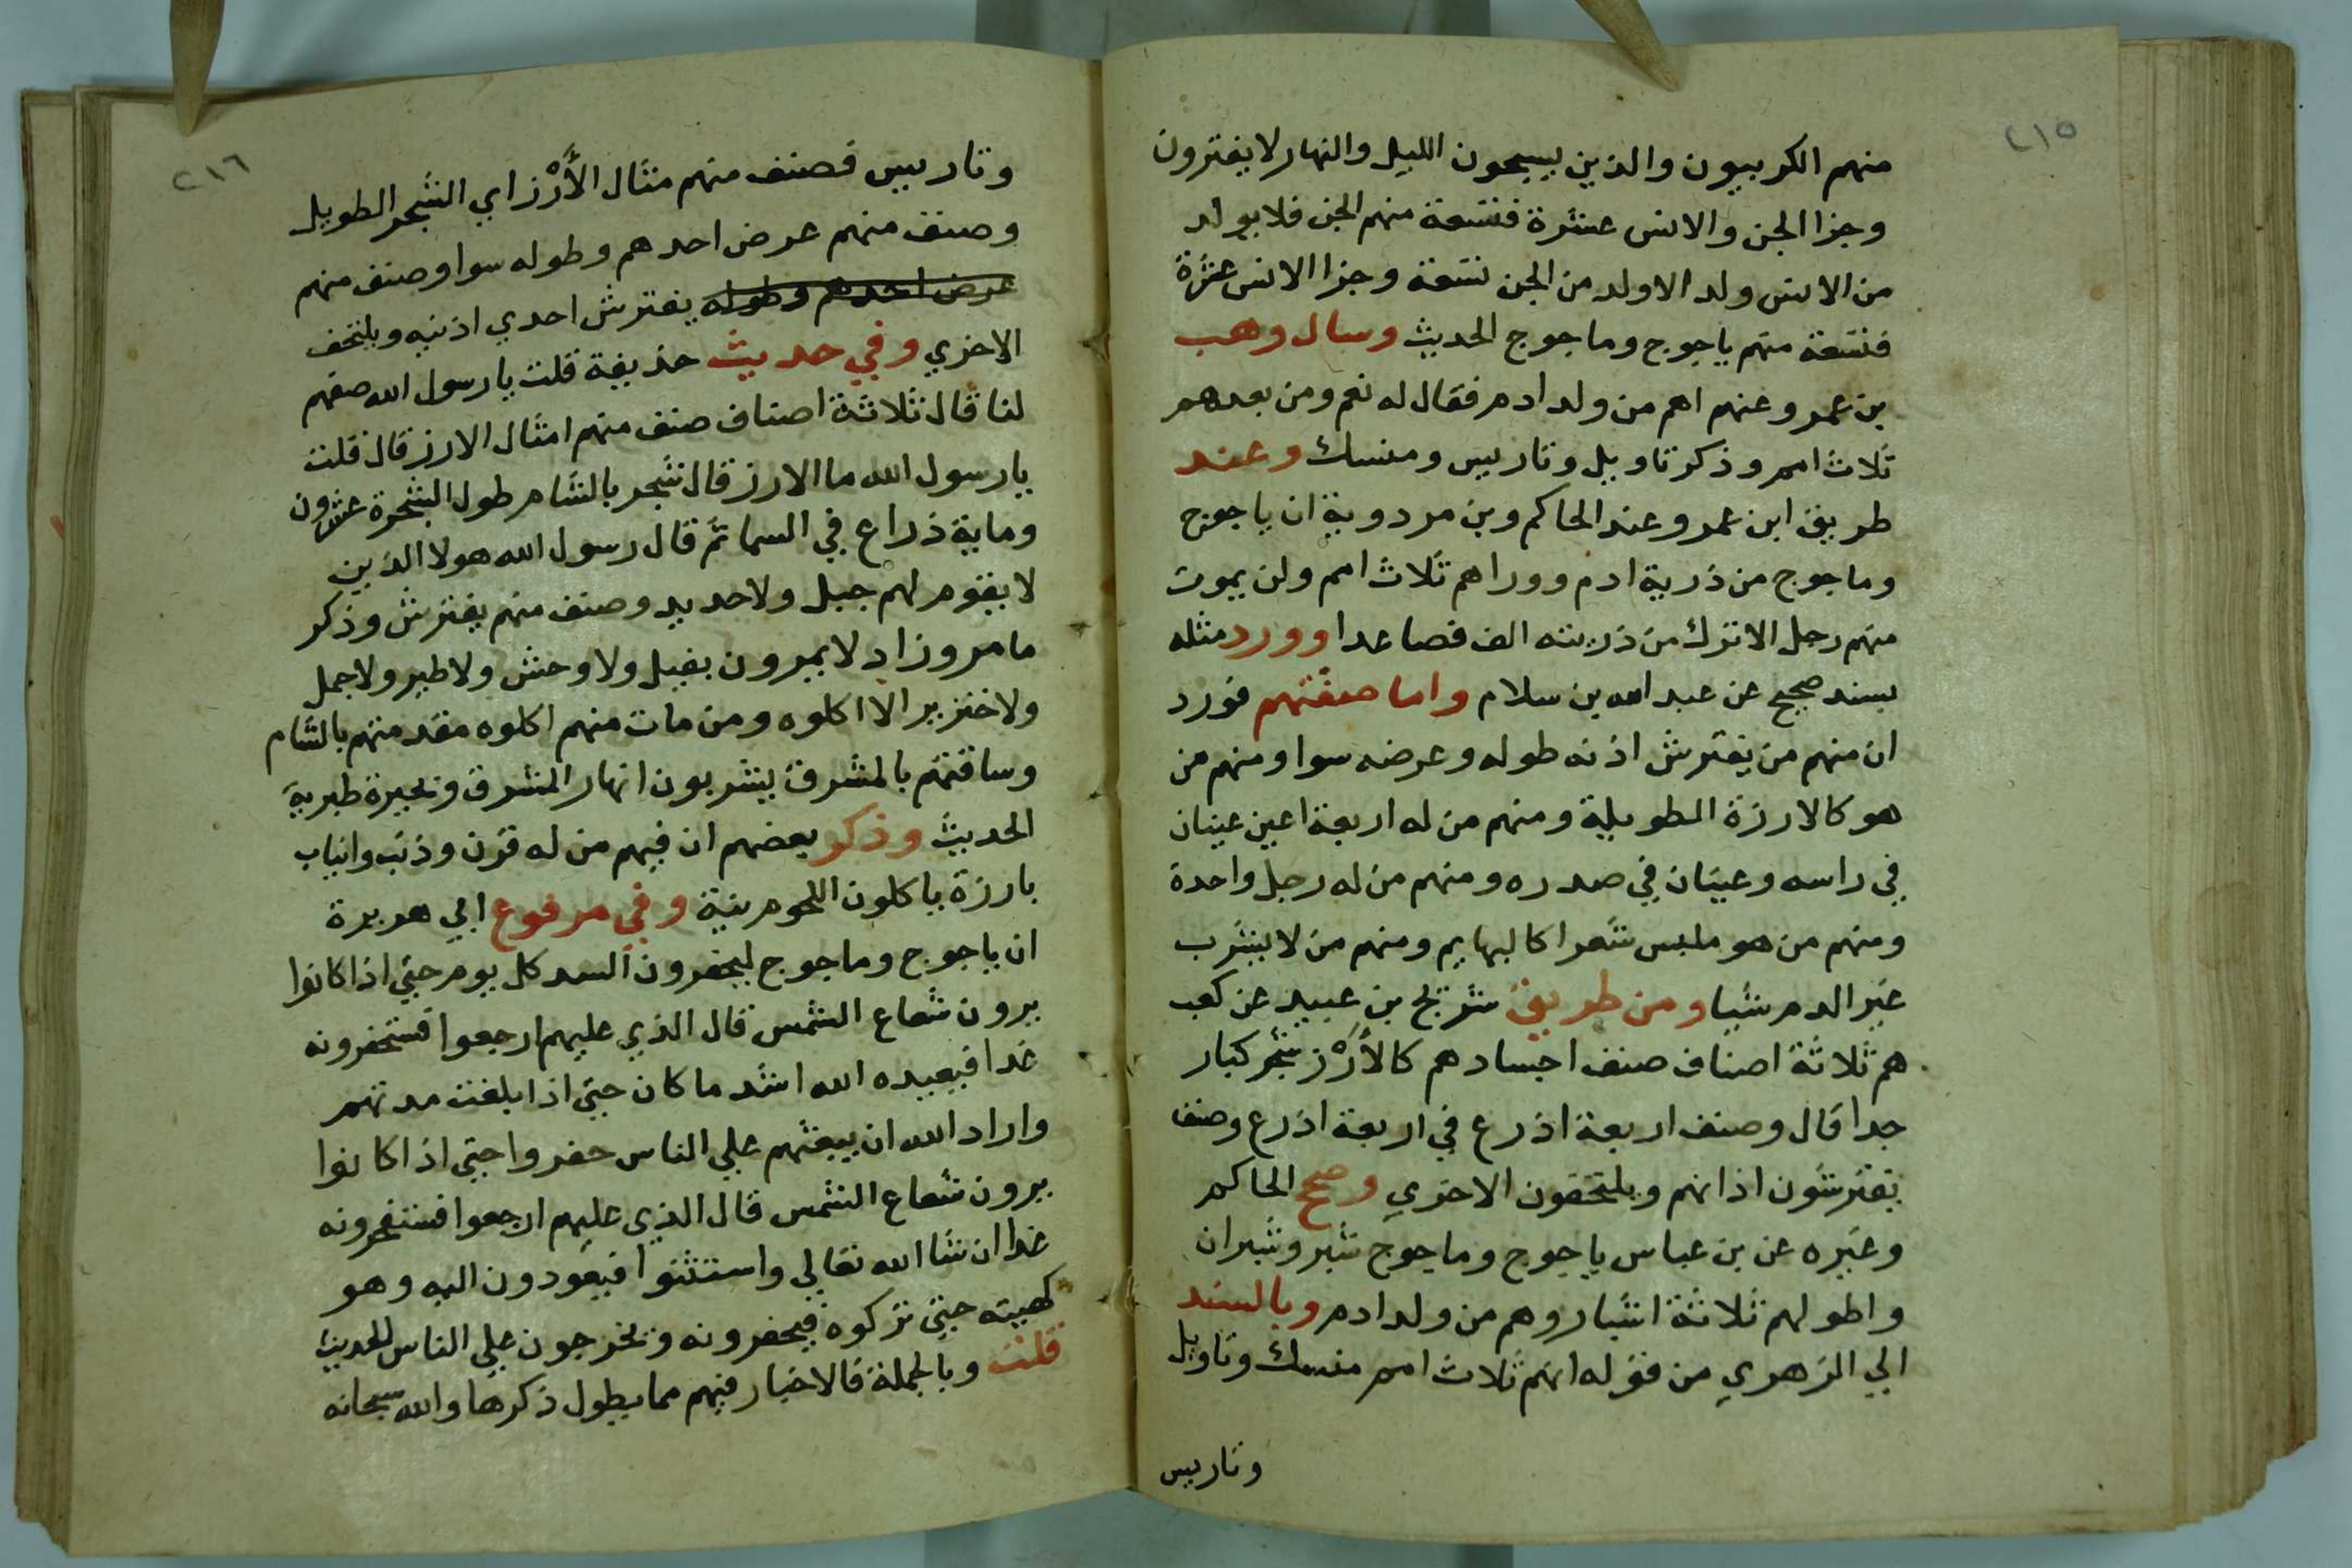 ٢١٥
منهم الكروبيون والذين يسبحون الليل والنهار لا يفترون
وجزا الجن والانس عشرة فتسعة منهم الجن فلا يولد
من الانس ولد الا ولد من الجن تسعة وجزا الانس عشرة
فتسعة منهم ياجوج وماجوج الحديث وسال وهب
بن عمرو عنهم اهم من ولد ادم فقال له نعم ومن بعدهم
ثلاث امم وذكر تاويل وتاريس ومنسك وعند
طريق ابن عمرو عند الحاكم وبن مردوية ان ياجوج
وماجوج من ذرية ادم ووراهم ثلاث امم ولن يموت
منهم رجل الا ترك من ذريته الف فصاعدا وورد مثله
بسند صحيح عن عبد الله بن سلام واما صفتهم فورد
ان منهم من يفترش اذنه طوله وعرضه سوا ومنهم من
هو كالارزة الطويلة ومنهم من له اربعة اعين عينان
في راسه وعينان في صدره ومنهم من له رجل واحدة
ومنهم من هو ملبس شعرا كالبهايم ومنهم من لا يشرب
غير الدم شيا ومن طريق شريح بن عبيد عن كعب
هم ثلاثة اصناف صنف اجسادهم كالأَرْز شجر كبار
جدا قال وصنف اربعة اذرع في اربعة اذرع وصنف
يفترشون اذانهم ويلتحفون الاخري وصحح الحاكم
وغيره عن بن عباس ياجوج وماجوج شبر وشبران
واطولهم ثلاثة اشبار وهم من ولد ادم وبالسند
الي الزهري من قوله انهم ثلاث امم منسك وتاويل
وتاريس
٢١٦
وتاريس فصنف منهم مثال الأَرْز اي الشجر الطويل
وصنف منهم عرض احدهم وطوله سوا وصنف منهم
عرض احدهم وطوله يفترش احدي اذنيه ويلتحف
الاخري وفي حديث حذيفة قلت يا رسول الله صفهم
لنا قال ثلاثة اصناف صنف منهم امثال الارز قال قلت
يا رسول الله ما الارز قال شجر بالشام طول الشجرة عشرون
وماية ذراع في السما ثم قال رسول الله هولا الذين
لا يقوم لهم جبل ولا حديد وصنف منهم يفترش وذكر
ما مر وزاد لا يمرون بفيل ولا وحش ولا طير ولا جمل
ولا خنزير الا اكلوه ومن مات منهم اكلوه مقدمتهم بالشام
وساقتهم بالمشرق يشربون انهار المشرق وبحيرة طبرية
الحديث وذكر بعضهم ان فيهم من له قرن وذنب وانياب
بارزة ياكلون اللحوم نية وفي مرفوع ابي هريرة
ان ياجوج وماجوج ليحفرون السد كل يوم حتي اذا كانوا
يرون شعاع الشمس قال الذي عليهم ارجعوا فستحفرونه
غدا فيعيده الله اشد ما كان حتي اذا بلغت مدتهم
واراد الله ان يبعثهم علي الناس حفروا حتي اذا كانوا
يرون شعاع الشمس قال الذي عليهم ارجعوا فستحفرونه
غدا ان شا الله تعالي واستثنوا فيعودون اليه وهو
كهيته حتي تركوه فيحفرونه ويخرجون علي الناس الحديث
قلت وبالجملة فالاخبار فيهم مما يطول ذكرها والله سبحانه